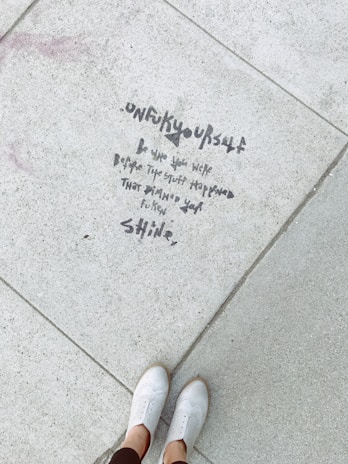 UNFUKYOURSELF
BE WHO YOU WERE
BEFORE THE STUFF HAPPENED
THAT DIMMED YOUR
FUKEN
SHINE